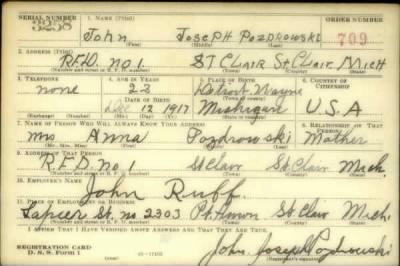 SERIAL NUMBER 1. NAME (Print) ORDER NUMBER
3258 John Joseph Pozdrowski 709
(First) (Middle) (Last)
2. ADDRESS (Print)
R.F.D. no 1. St Clair St. Clair Mich
(Number and street or R. F. D. number) (Town) (County) (State)
3. TELEPHONE 4. AGE IN YEARS 5. PLACE OF BIRTH 6. COUNTRY OF CITIZENSHIP
none 22 Detroit Wayne
(Town) (County)
DATE OF BIRTH
Dec 12 1917 Michigan U.S.A
(Exchange) (Number) (Mo.) (Day) (Yr.) (State or country)
7. NAME OF PERSON WHO WILL ALWAYS KNOW YOUR ADDRESS 8. RELATIONSHIP OF THAT PERSON
Mrs Anna Pozdrowski Mother
(Mr., Mrs., Miss) (First) (Middle) (Last)
9. ADDRESS OF THAT PERSON
R.F.D. no 1 St Clair St. Clair Mich.
(Number and street or R. F. D. number) (Town) (County) (State)
10. EMPLOYER'S NAME
John Ruff
11. PLACE OF EMPLOYMENT OR BUSINESS
Lapeer St. no 2303 Pt. Huron St Clair Mich.
(Number and street or R. F. D. number) (Town) (County) (State)
I AFFIRM THAT I HAVE VERIFIED ABOVE ANSWERS AND THAT THEY ARE TRUE.
REGISTRATION CARD
D. S. S. Form 1 John Joseph Pozdrowski